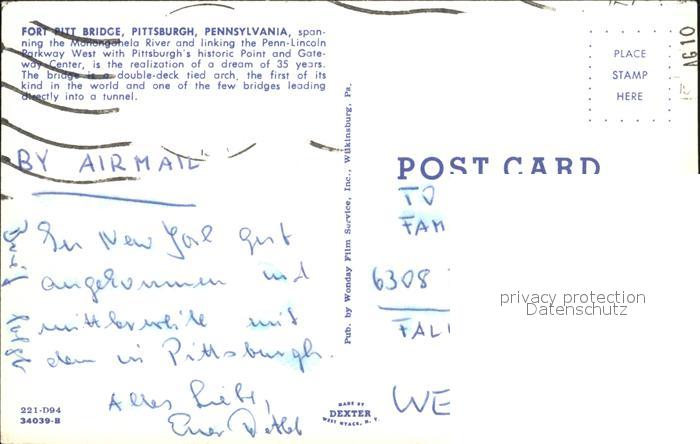 FORT PITT BRIDGE, PITTSBURGH, PENNSYLVANIA, span-
ning the Monongahela River and linking the Penn-Lincoln
Parkway West with Pittsburgh's historic Point and Gate-
way Center, is the realization of a dream of 35 years.
The bridge is a double-deck tied arch, the first of its
kind in the world and one of the few bridges leading
directly into a tunnel.
BY AIRMAIL
In New York gut
angekommen und
mittlerweile mit
dem in Pittsburgh.
Alles Liebe,
Euer Detlef
221-D94
34039-B
Pub. by Wonday Film Service, Inc., Wilkinsburg, Pa.
MADE BY
DEXTER
WEST NYACK, N. Y.
PLACE
STAMP
HERE
AG 10
POST CARD
TO
FAM
6308
FALI
WE
privacy protection
Datenschutz